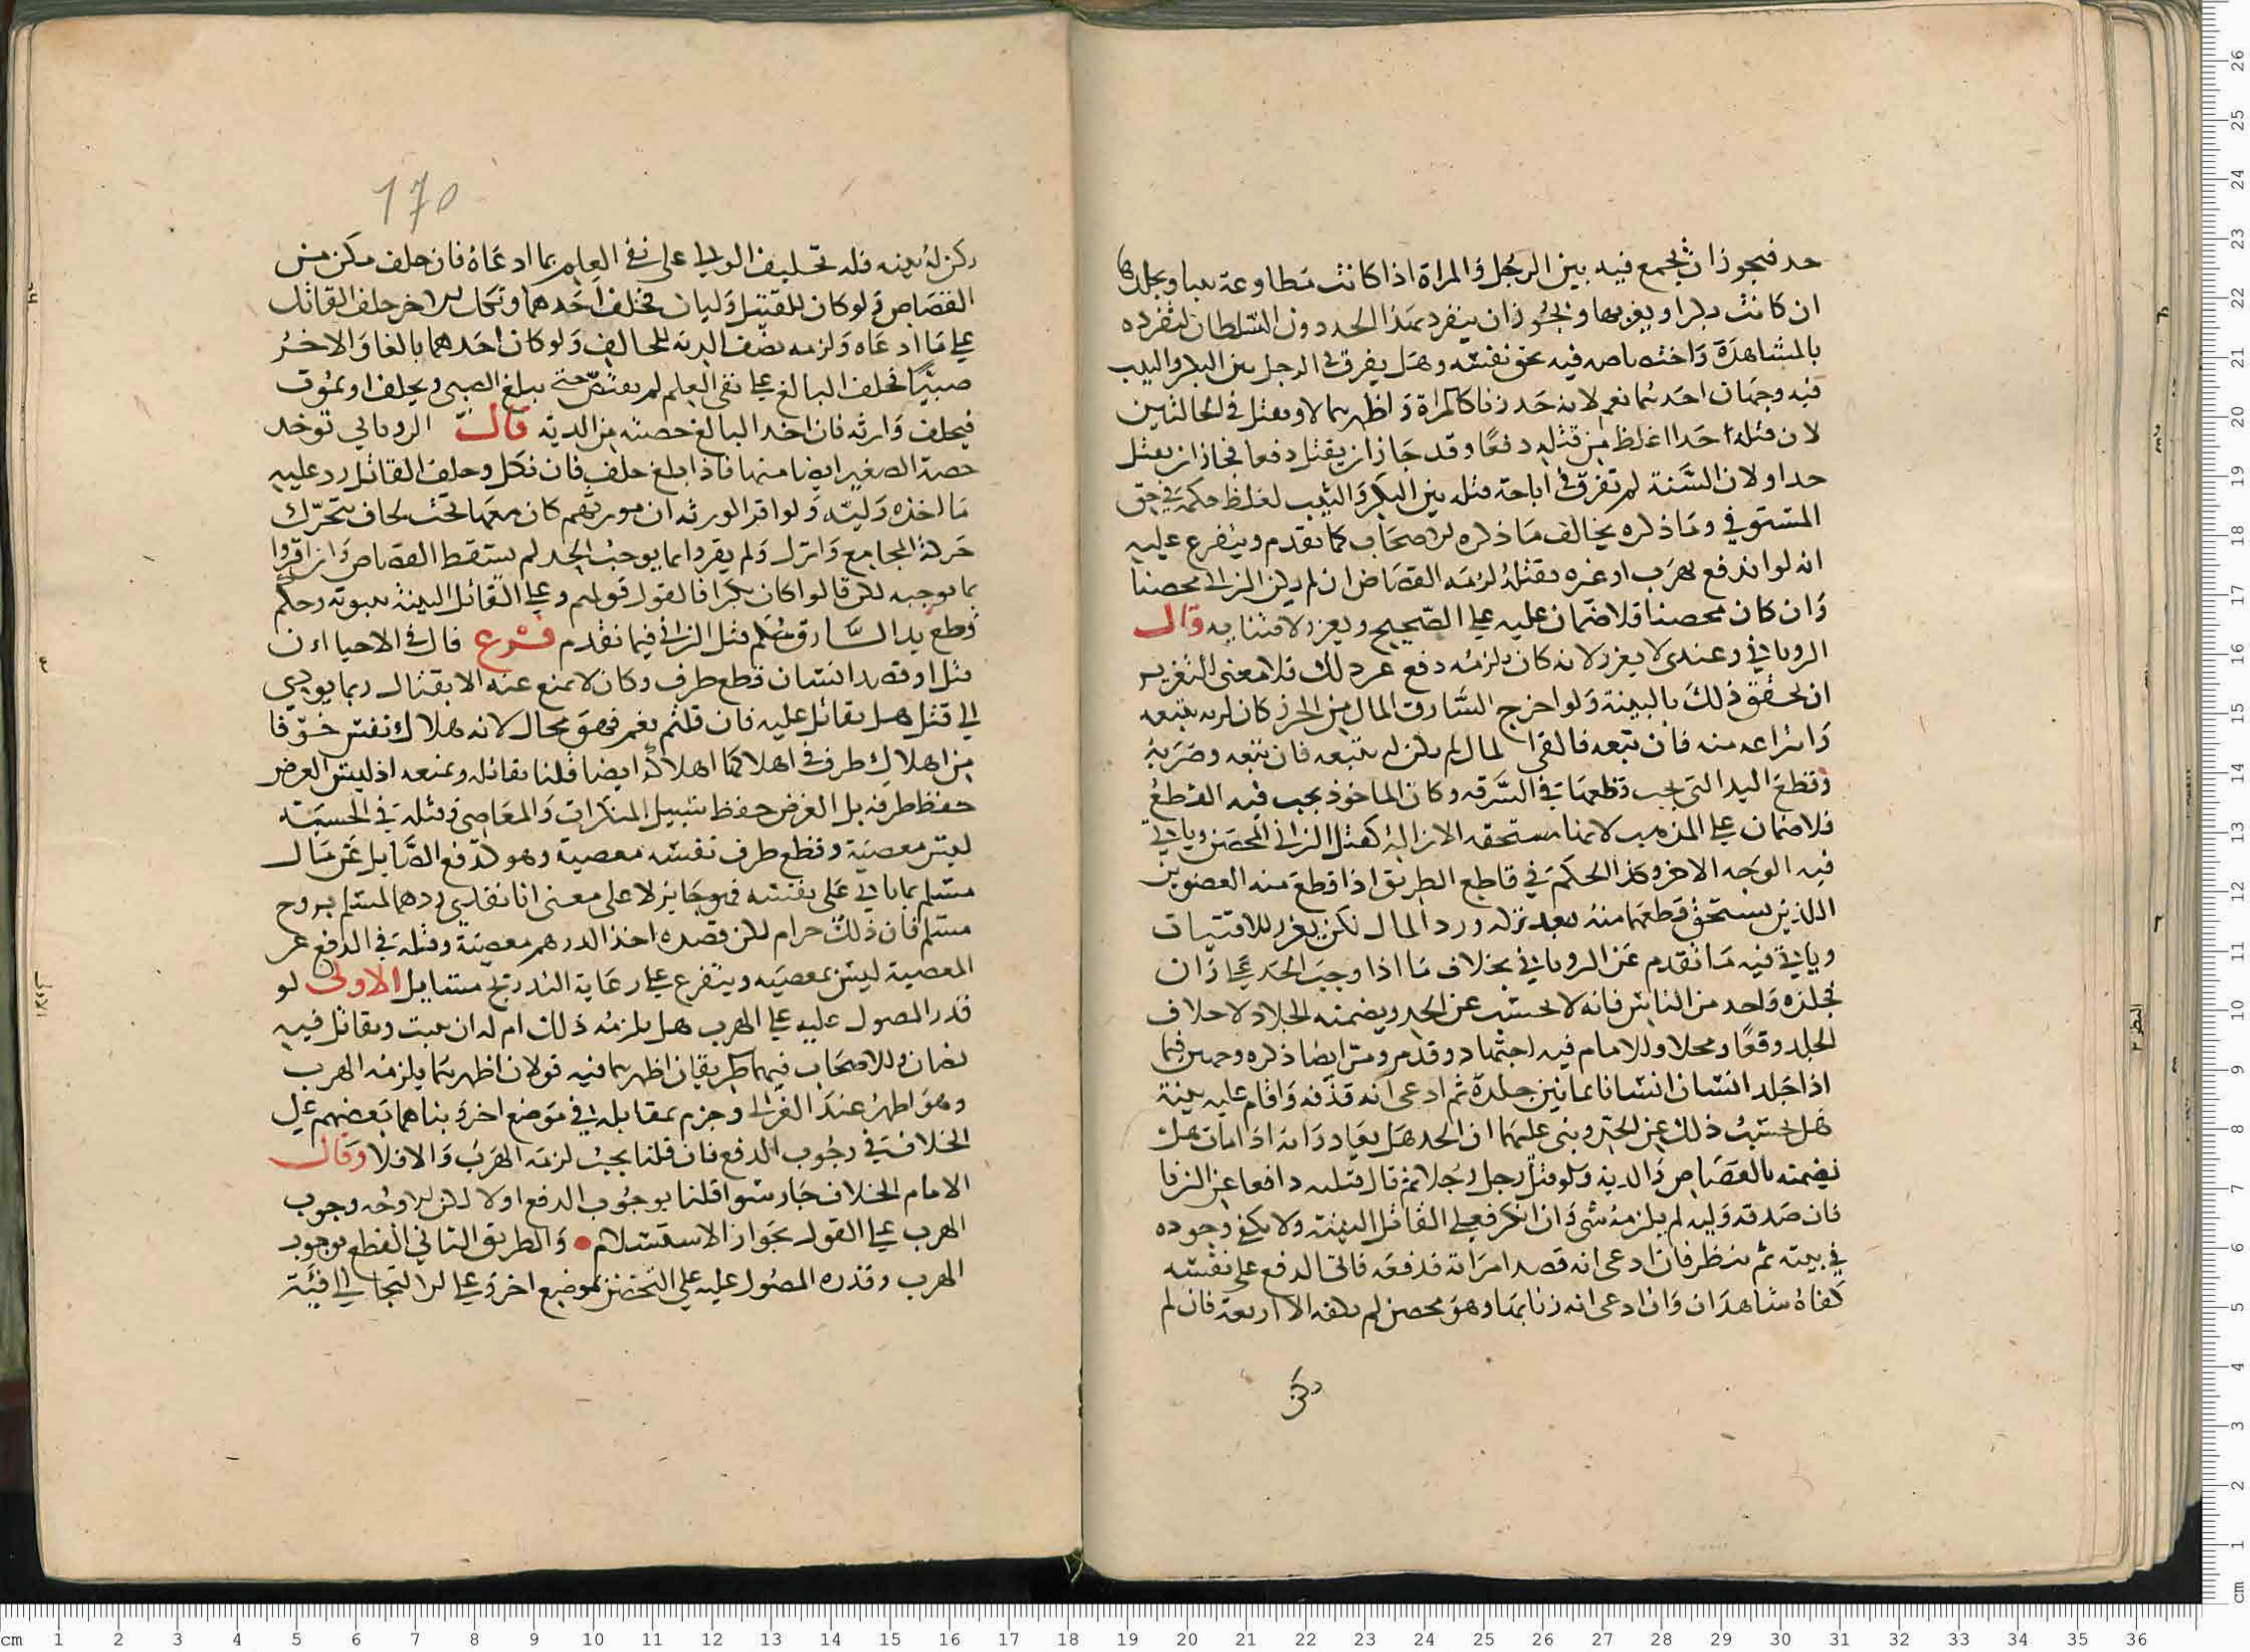 حد فيجوز ان يجمع فيه بين الرجل والمراة اذا كانت مطاوعة
ان كانت بكرا او يغربها ولا يجوز ان ينفرد بهذا الحد دون السلطان لتفرده
بالمشاهدة واختصاصه فيه بحق نفسه وهل يفرق في الرجل بين البكر والثيب
فيه وجهان احدهما نعم لانه حد زنا كالمراة واظهرهما لا ويقتل في الحالتين
لان قتله احدا اغلظ من قتله دفعا وقد جاز ان يقتل دفعا فجاز ان يقتل
حدا ولان السنة لم تفرق في اباحة قتله بين البكر والثيب لغلظ حكمه في حق
المستوفي وما ذكره يخالف ما ذكره الاصحاب كما تقدم ويتفرع عليه
انه لو اندفع بهرب او غيره فقتله لزمه القصاص ان لم يكن الزاني محصنا
وان كان محصنا فلا ضمان عليه على الصحيح ويعزر لافتياته وقال
الروياني وعندي لا يعزر لانه كان يلزمه دفع عن ذلك فلا معنى لتعزيره
ان تحقق ذلك بالبينة ولو اخرج السارق المال من الحرز كان له تتبعه
وانتزاعه منه فان تبعه فالقى المال لم يكن له تتبعه فان تتبعه وضربه
وقطع اليد التي يجب قطعها في السرقه وكان الماخوذ يجب فيه القطع
فلا ضمان على المذهب لانها مستحقه الازالة كقتل الزاني المحصن وياتي
فيه الوجه الاخر وكذا الحكم في قاطع الطريق اذا قطع منه العضوين
اللذين يستحق قطعهما منه بعد تركه ورد المال لكن يعزر للافتيات
وياتي فيه ما تقدم عن الروياني بخلاف ما اذا وجب الحد على زان
فجلده واحد من الناس فانه لا يحسب عن الحد ويضمنه الجلاد لاختلاف
الجلد وقعا ومحلا وللامام فيه اجتهاد وقد مر ومر ايضا ذكره وجهين فيما
اذا جلد انسان انسانا ثمانين جلدة ثم ادعى انه قذفه واقام عليه بينة
هل يحسب ذلك عن الحد وبنى عليهما ان الحد هل يعاد وانه اذا مات هل
يضمنه بالقصاص والدية ولو قتل رجل رجلا ثم قال قتلته دافعا عن الزنا
فان صدقه وليه لم يلزمه شي وان انكر فعلى القاتل البينة ولا يكفي وجوده
في بيته ثم ينظر فان ادعى انه قصد امراته فدفعه فاتى الدفع على نفسه
كفاه شاهدان وان ادعى انه زنا بها وهو محصن لم يكفه الا اربعة فان لم
170
يكن له بينه فله تحليف الولي على نفي العلم بما ادعاه فان حلف مكن من
القصاص ولو كان للقتيل وليان فحلف احدهما ونكل الاخر حلف القاتل
على ما ادعاه ولزمه نصف الدية للحالف ولو كان احدهما بالغا والاخر
صبيا فحلف البالغ على نفي العلم لم يقتص حتى يبلغ الصبي ويحلف او يموت
فيحلف وارثه فان اخذ البالغ حصته من الدية قال الروياني توخذ
حصة الصغير ايضا منها فاذا بلغ حلف فان نكل وحلف القاتل رد عليه
ما اخذه وليه ولو اقر الورثه ان مورثهم كان معها تحت لحاف يتحرك
حركة المجامع وانزل ولم يقروا بما يوجب الحد لم يسقط القصاص وان اقروا
بما يوجبه لكن قالوا كان بكرا فالقول قولهم وعلى القاتل البينة بثبوته وحكم
قطع يد السارق حكم قتل الزاني فيما تقدم فرع قال في الاحياء ان
قتل او قصد انسان قطع طرف وكان لا يمنع عنه الا بقتال ربما يودي
الى قتل هل يقاتل عليه فان قلتم نعم فهو محال لانه هلاك نفس خوفا
من اهلاك طرف في اهلاكها اهلاكه ايضا قلنا يقاتله ويمنعه اذ ليس الغرض
حفظ طرفه بل الغرض حفظ سبيل المنكرات والمعاصي وقتله في الحسبة
ليس معصية وقطع طرف نفسه معصية وهو كدفع الصايل عن مال
مسلم بما ياتي على نفسه فهو جايز لا على معنى انا نفدي درهما لمسلم بروح
مسلم فان ذلك حرام لكن قصده اخذ الدرهم معصية وقتله في الدفع عن
المعصية ليس بمعصيه ويتفرع على رعاية التدريج مسايل الاولى لو
قدر المصول عليه على الهرب هل يلزمه ذلك ام له ان يثبت ويقاتل فيه
نصان وللاصحاب فيهما طريقان اظهرهما فيه قولان اظهرهما يلزمه الهرب
وهو اظهر عند الغزالي وجزم بمقابله في موضع اخر وبناهما بعضهم على
الخلاف في وجوب الدفع فان قلنا يجب لزمه الهرب والا فلا وقال
الامام الخلاف جار سوا قلنا بوجوب الدفع اولا لكن لا وجه وجوب
الهرب على القول بجواز الاستسلام والطريق الثاني القطع بوجوب
الهرب وقدره المصول عليه على التحصن بموضع اخر وعلى الالتجا الى فئة